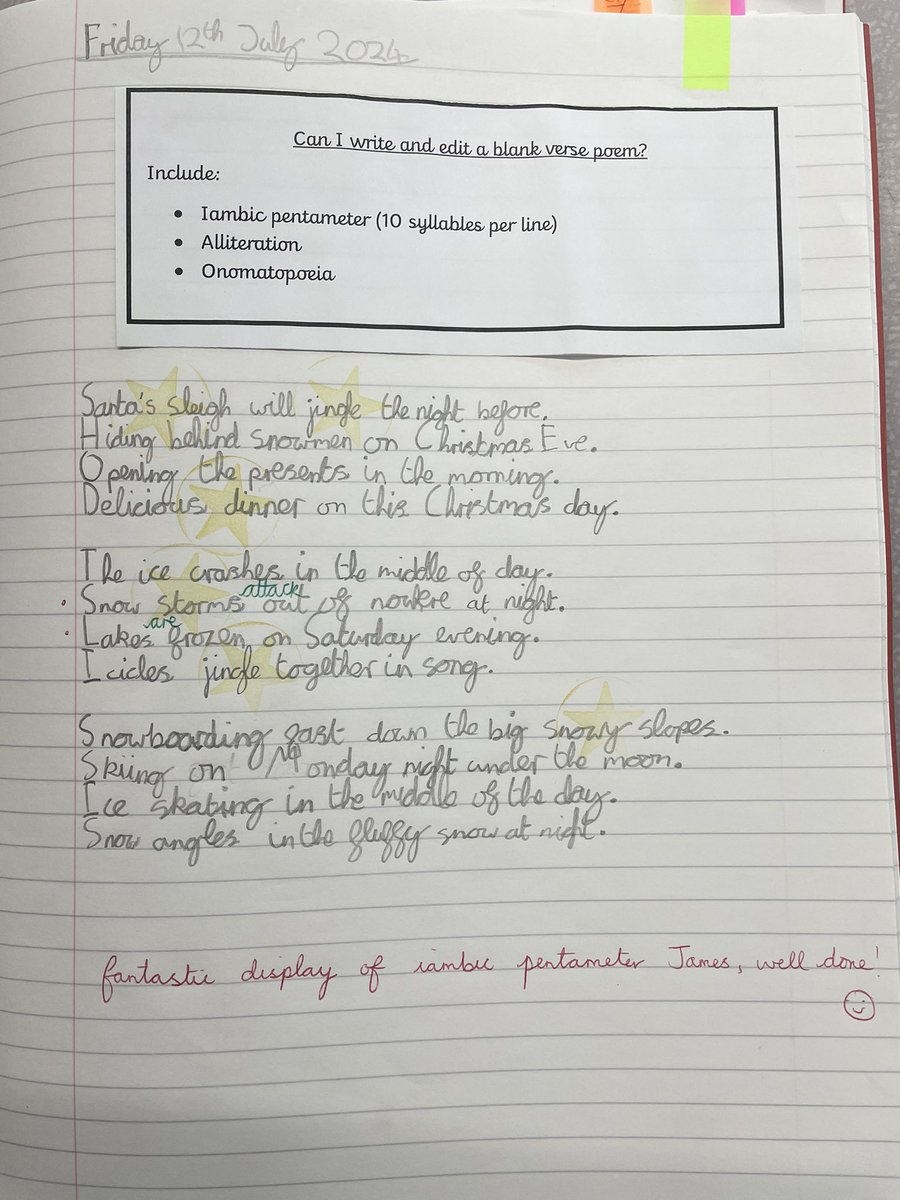 Friday 12th July 2024
Can I write and edit a blank verse poem?
Include:
• Iambic pentameter (10 syllables per line)
• Alliteration
• Onomatopoeia
Santa's sleigh will jingle the night before.
Hiding behind snowmen on Christmas Eve.
Opening the presents in the morning.
Delicious dinner on this Christmas day.
The ice crashes in the middle of day.
attack
Snow storms out of nowere at night.
are
Lakes frozen on Saturday evening.
Icicles jingle together in song.
Snowboarding fast down the big snowy slopes.
Skiing on Monday night under the moon.
Ice skating in the middle of the day.
Snow angles in the fluffy snow at night.
fantastic display of iambic pentameter James, well done!